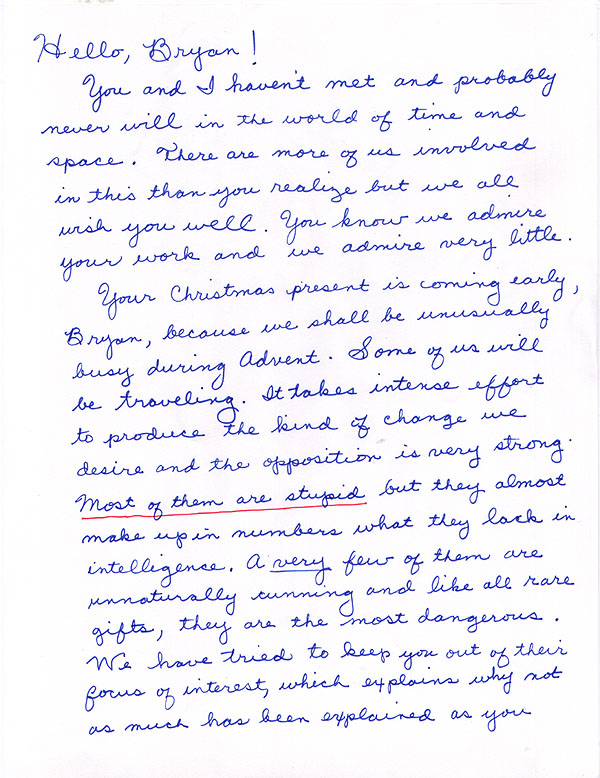 Hello, Bryan!
You and I haven't met and probably
never will in the world of time and
space. There are more of us involved
in this than you realize but we all
wish you well. You know we admire
your work and we admire very little.
Your Christmas present is coming early,
Bryan, because we shall be unusually
busy during Advent. Some of us will
be traveling. It takes intense effort
to produce the kind of change we
desire and the opposition is very strong.
Most of them are stupid but they almost
make up in numbers what they lack in
intelligence. A very few of them are
unnaturally cunning and like all rare
gifts, they are the most dangerous.
We have tried to keep you out of their
focus of interest, which explains why not
as much has been explained as you